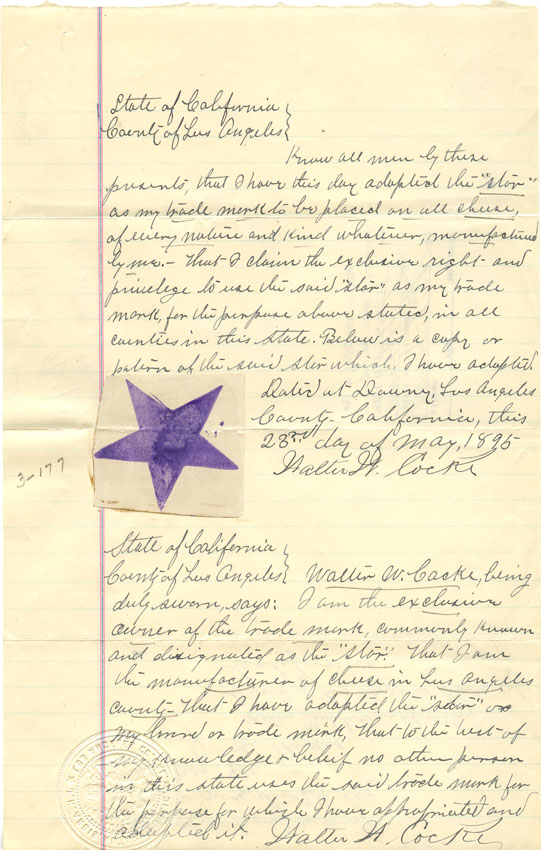 State of California
County of Los Angeles
Know all men by these
presents, that I have this day adopted the "star"
as my trade mark to be placed on all cheese,
of every nature and kind whatever, manufactured
by me.- That I claim the exclusive right and
privilege to use the said "star" as my trade
mark, for the purpose above stated, in all
counties in this State. Below is a copy or
pattern of the said star which I have adopted.
Dated at Downy, Los Angeles
County- California, this
23rd day of May, 1895
Walter W. Cocke
3-177
State of California
County of Los Angeles Walter W. Cocke, being
duly sworn, says: I am the exclusive
owner of the trade mark, commonly known
and disignated as the "star". That I am
the manufacturer of cheese in Los Angeles
county- That I have adopted the "star" as
my brand or trade mark, that to the best of
my knowledge & belief no other person
in this state uses the said trade mark for
the purpose for which I have appropriated and
adopted it. Walter W. Cocke